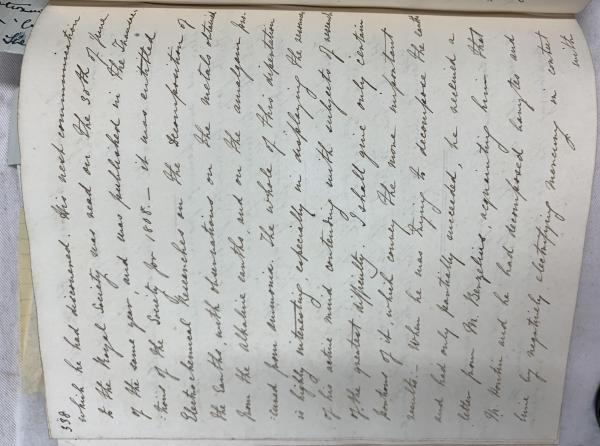 338
which he had discovered. His next communication
to the Royal Society was read on the 30th of June
of the same year and was published in the Transac-
-tions of the Society for 1808. — it was entitled
Electro chemical Researches on the Decomposition of
the Earths, with observations on the metals obtained
from the alkaline earths and on the amalgam pro-
-cured from ammonia. The whole of this dissertation
is highly interesting, especially in displaying the
of his active mind contending with subjects of
of the greatest difficulty. I shall give only certain
portions of it, which convey the more important
results — When he was trying to decompose the earths
and had only partially succeeded, he received a
letter from M. Berzelius, acquainting him that
M. Pontin and he had decomposed barytes and
lime by negatively electrifying mercury in contact
with